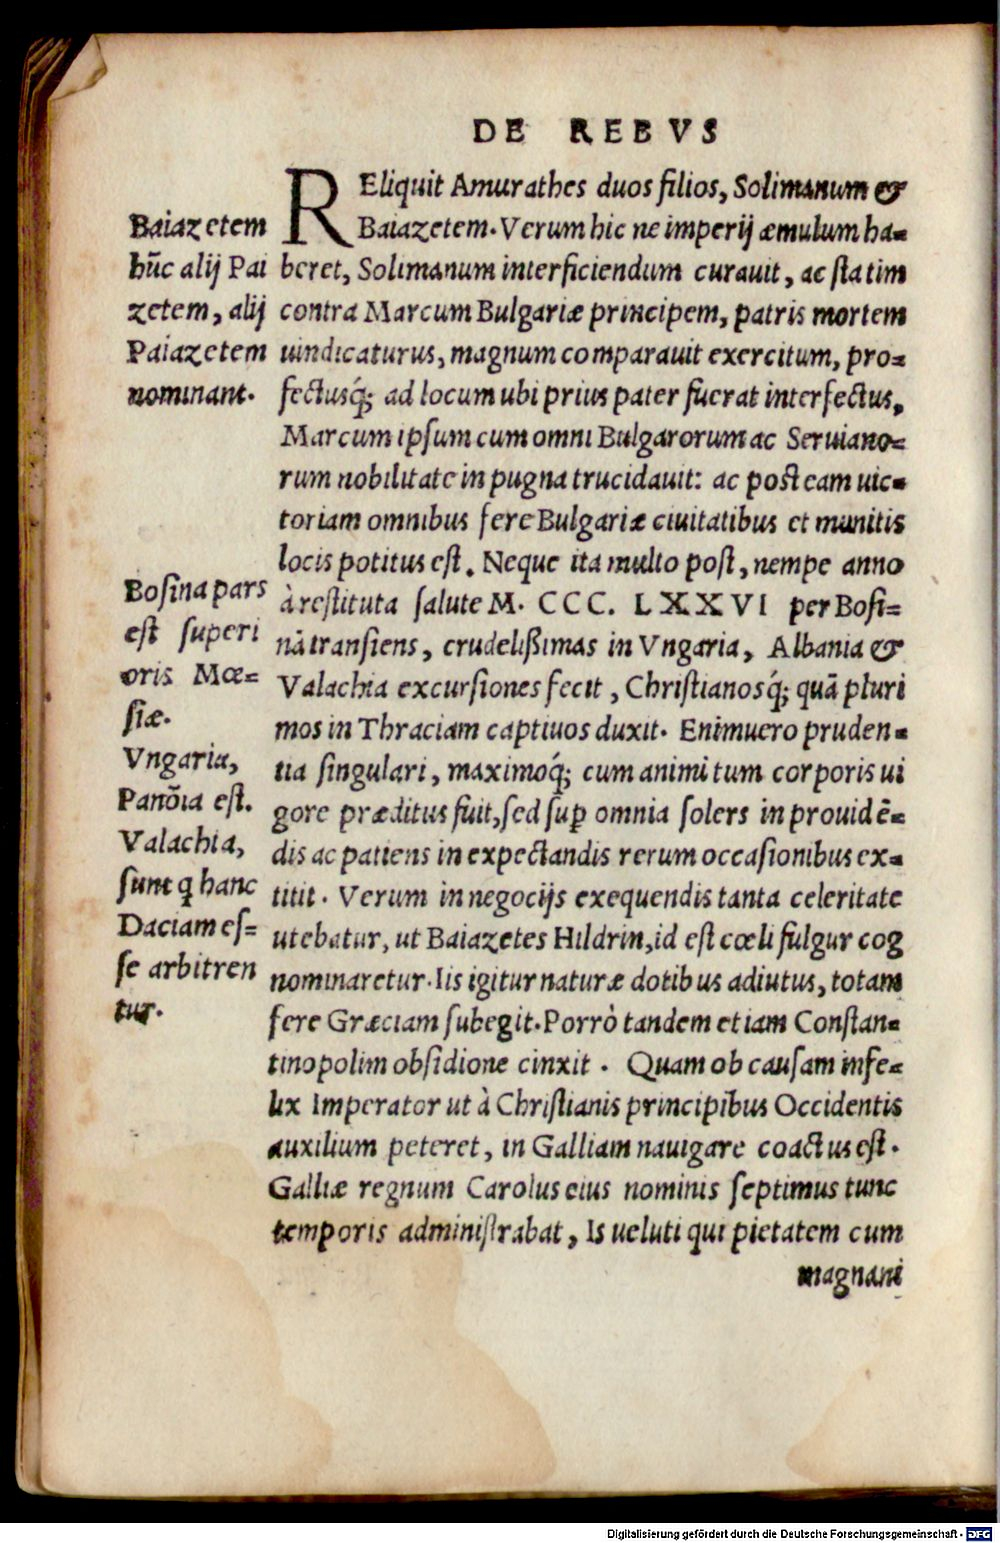 DE REBVS
REliquit Amurathes duos filios, Solimanum &
Baiazetem. Verum hic ne imperij æmulum ha-
beret, Solimanum interficiendum curauit, ac statim
contra Marcum Bulgariæ principem, patris mortem
uindicaturus, magnum comparauit exercitum, pro-
fectusq́; ad locum ubi prius pater fuerat interfectus,
Marcum ipsum cum omni Bulgarorum ac Seruiano-
rum nobilitate in pugna trucidauit: ac post eam uic-
toriam omnibus fere Bulgariæ ciuitatibus et munitis
locis potitus est. Neque ita multo post, nempe anno
à restituta salute M. CCC. LXXVI per Bosi-
nā transiens, crudelißimas in Vngaria, Albania &
Valachia excursiones fecit, Christianosq́; quā pluri
mos in Thraciam captiuos duxit. Enimuero pruden-
tia singulari, maximoq́; cum animi tum corporis ui
gore præditus fuit, sed sup̲ omnia solers in prouidē-
dis ac patiens in expectandis rerum occasionibus ex-
titit. Verum in negocijs exequendis tanta celeritate
utebatur, ut Baiazetes Hildrin, id est cœli fulgur cog
nominaretur. Iis igitur naturæ dotibus adiutus, totam
fere Græciam subegit. Porrò tandem etiam Constan-
tinopolim obsidione cinxit. Quam ob causam infe-
lix Imperator ut à Christianis principibus Occidentis
auxilium peteret, in Galliam nauigare coactus est.
Galliæ regnum Carolus eius nominis septimus tunc
temporis administrabat, Is ueluti qui pietatem cum
magnani
Baiazetem
hūc alij Pai
zetem, alij
Paiazetem
nominant.
Bosina pars
est superi
oris Mœ-
siæ.
Vngaria,
Panōia est.
Valachia,
sunt q hanc
Daciam es-
se arbitren
tur.
Digitalisierung gefördert durch die Deutsche Forschungsgemeinschaft - DFG